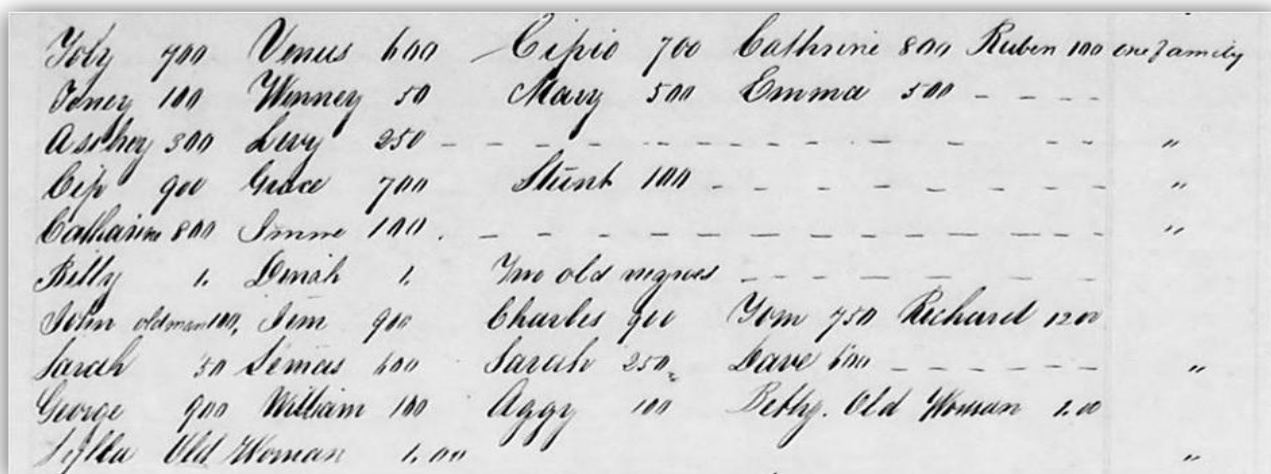 Toby 700 Venus 600 Cipio 700 Cathrine 800 Ruben 100 one Family
Toney 100 Winney 50 Mary 500 Emma 500 - - - -
Aschey 300 Levy 250 - - - - - - - - - - - - - "
Cip 900 Grace 700 Stunt 100 - - - - - - - - - "
Catharine 800 100 - - - - - - - - - - - - - "
Billy 1. Dinah 1. Two old negroes - - - - - - -
John old man 100, Jim 900 Charles 900 Tom 750 Richard 1200
Sarah 50 600 Sarah 250 Dave 600 - - - - - - "
George 900 William 100 Aggy 100 Bethy. Old Woman 1.00
Old Woman 1.00 "